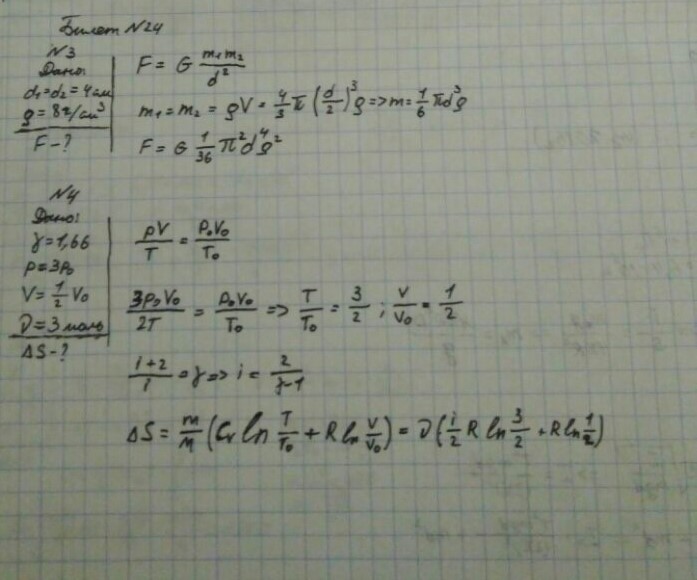 Билет N24
N3
Дано:
d₁=d₂=4см
ρ=8г/см³
F-?
F = G m₁m₂/d²
m₁=m₂=ρV=4/3π(d/2)³ρ=>m=1/6πd³ρ
F=G 1/36 π²d⁴ρ²
N4
Дано:
γ=1,66
p=3p₀
V=1/2V₀
ν=3моль
ΔS-?
pV/T = p₀V₀/T₀
3p₀V₀/2T = p₀V₀/T₀ => T/T₀ = 3/2; V/V₀ = 1/2
i+2/i = γ => i = 2/γ-1
ΔS = m/M (Cv ln T/T₀ + R ln V/V₀) = ν(i/2 R ln 3/2 + R ln 1/2)